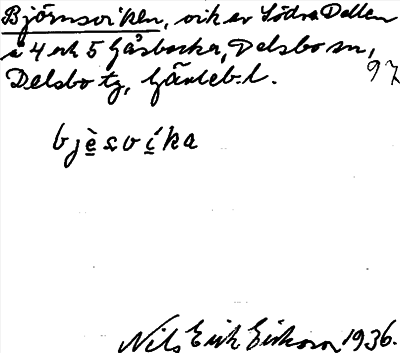 Björnsviken, vik av Södra Dellen
i 4 och 5 Gåsbacka, Delsbo sn,
Delsbo tg, Gävleb. l.
97
bjèsvíka
Nils Erik Erikson 1936.